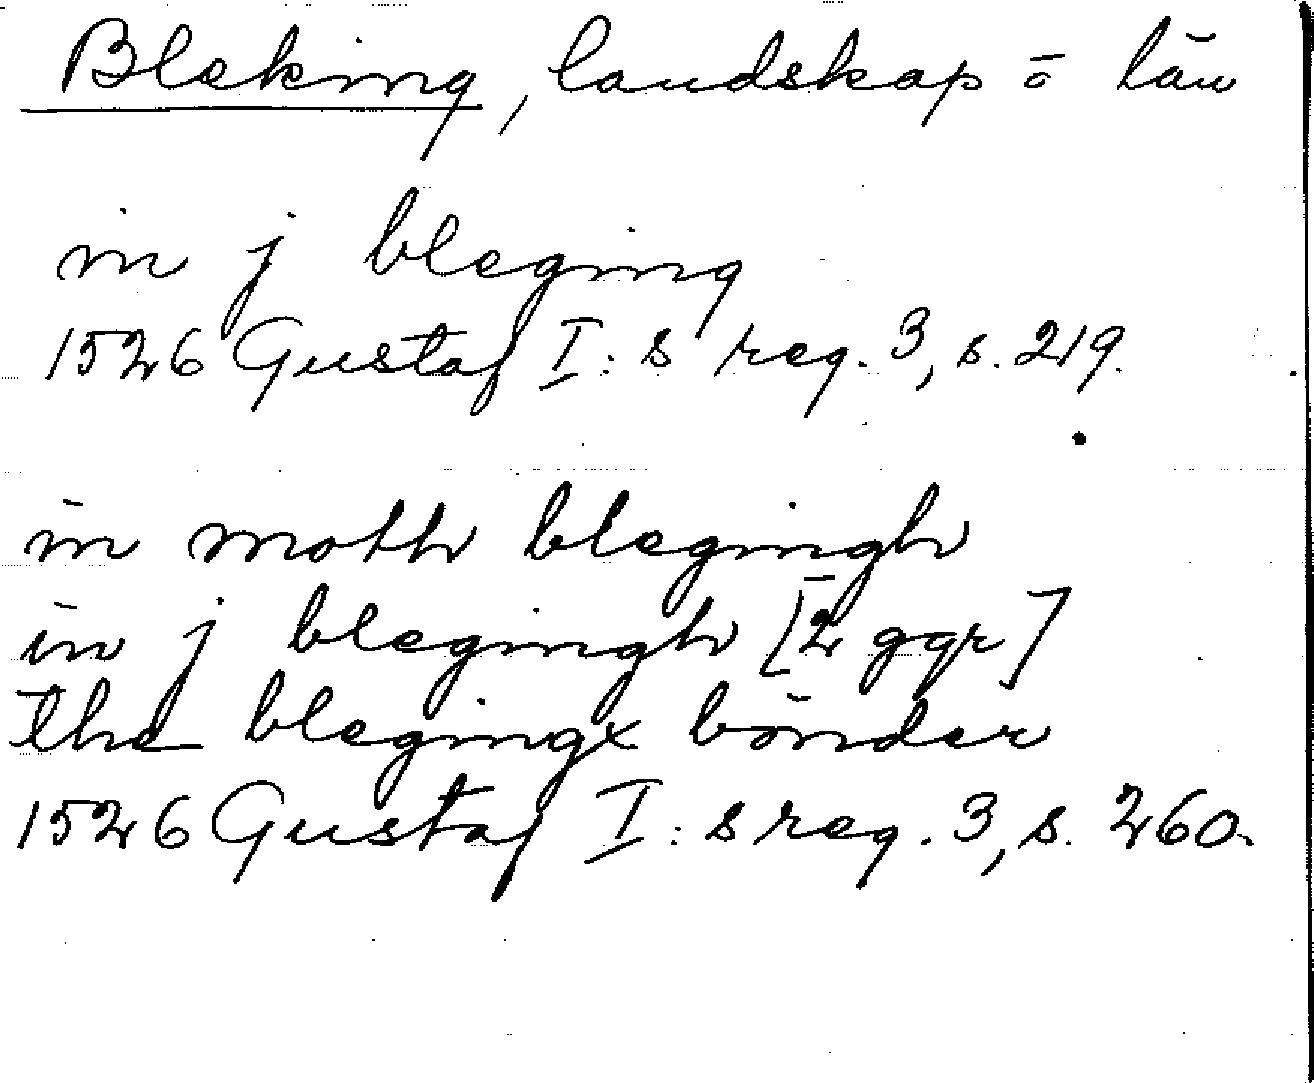 Bleking, landskap ō län
in j bleging
1526 Gustaf I:s reg. 3, s. 219.
in moth blegingh
in j blegingh [2 ggr]
the blegingx bönder
1526 Gustaf I:s reg. 3, s. 260.